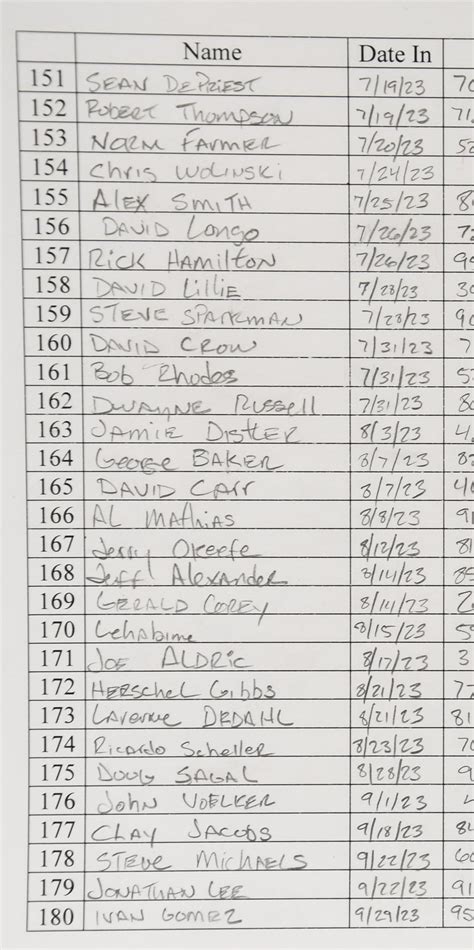 Name Date In
151 SEAN DEPRIEST 7/19/23 70
152 Robert Thompson 7/19/23 71
153 NORM FARMER 7/20/23 52
154 Chris WOLINSKI 7/24/23
155 ALEX SMITH 7/25/23 8
156 DAVID Longo 7/26/23 7
157 RICK HAMILTON 7/26/23 9
158 DAVID Lillie 7/28/23 30
159 STEVE SPARKMAN 7/28/23 90
160 DAVID CROW 7/31/23 7
161 Bob Rhodes 7/31/23 5
162 DWAYNE RUSSELL 7/31/23 80
163 JAMIE Distler 8/3/23 4
164 George BAKER 8/7/23 8
165 DAVID Carr 8/7/23 40
166 AL Mathias 8/8/23 91
167 Jerry Okeefe 8/12/23 81
168 Jeff Alexander 8/14/23 85
169 GERALD COREY 8/14/23 2
170 8/15/23 5
171 JOE ALDRIC 8/17/23 3
172 HERSCHEL Gibbs 8/21/23 7
173 Laverne DEDAHL 8/21/23 81
174 Ricardo Scheller 8/23/23 70
175 DOUG SAGAL 8/28/23 9
176 John VOELKER 9/1/23 4
177 CLAY JACOBS 9/18/23 84
178 STEVE MICHAELS 9/22/23 60
179 JONATHAN LEE 9/22/23 91
180 IVAN GOMEZ 9/29/23 95